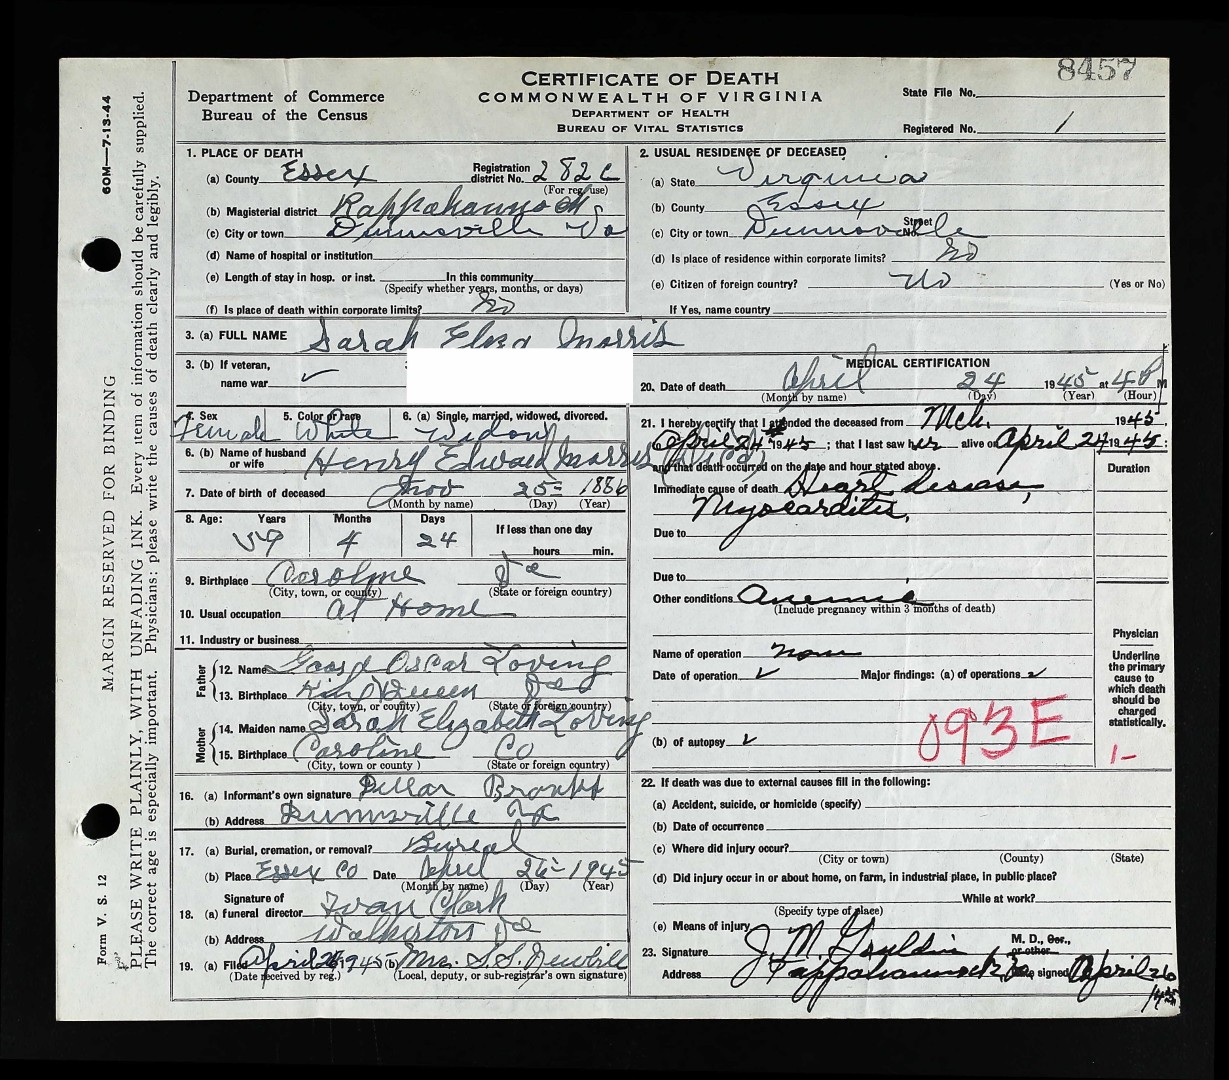 8457
CERTIFICATE OF DEATH
COMMONWEALTH OF VIRGINIA
DEPARTMENT OF HEALTH
BUREAU OF VITAL STATISTICS
Department of Commerce
Bureau of the Census
State File No.
Registered No. 1
60M—7-13-44
MARGIN RESERVED FOR BINDING
Form V. S. 12
PLEASE WRITE PLAINLY, WITH UNFADING INK. Every item of information should be carefully supplied.
The correct age is especially important. Physicians: please write the causes of death clearly and legibly.
1. PLACE OF DEATH
(a) County Essex Registration district No. 282 c
(For reg. use)
(b) Magisterial district Rappahannock
(c) City or town Dunnsville Va
(d) Name of hospital or institution
(e) Length of stay in hosp. or inst. In this community
(Specify whether years, months, or days)
(f) Is place of death within corporate limits? No
2. USUAL RESIDENCE OF DECEASED
(a) State Virginia
(b) County Essex
(c) City or town Dunnsville Street No.
(d) Is place of residence within corporate limits? No
(e) Citizen of foreign country? No (Yes or No)
If Yes, name country
3. (a) FULL NAME Sarah Eliza Morris
3. (b) If veteran,
name war
4. Sex 5. Color or race 6. (a) Single, married, widowed, divorced.
Female White Widow
6. (b) Name of husband
or wife Henry Edward Morris
7. Date of birth of deceased Nov 25 1886
(Month by name) (Day) (Year)
8. Age: Years Months Days If less than one day
59 4 24
hours min.
9. Birthplace Caroline Va
(City, town, or county) (State or foreign country)
10. Usual occupation at Home
11. Industry or business
Father
12. Name Oscar Loving
13. Birthplace King Queen
(City, town, or county) (State or foreign country)
Mother
14. Maiden name Sarah Elizabeth Loving
15. Birthplace Caroline Co
(City, town or county) (State or foreign country)
16. (a) Informant's own signature
(b) Address Dunnsville Va
17. (a) Burial, cremation, or removal? Bureal
(b) Place Essex Co Date April 26 1945
(Month by name) (Day) (Year)
Signature of
18. (a) funeral director
(b) Address Walkerton Va
19. (a) Filed April 26 1945 (b) Mrs. S.S.
(Date received by reg.) (Local, deputy, or sub-registrar's own signature)
MEDICAL CERTIFICATION
20. Date of death April 24 1945 at 4 P M
(Month by name) (Day) (Year) (Hour)
21. I hereby certify that I attended the deceased from Mch. 1945
to April 24 1945; that I last saw her alive on April 24 1945;
and that death occurred on the date and hour stated above. Duration
Immediate cause of death Heart disease,
Myocarditis,
Due to
Due to
Other conditions Anemia
(Include pregnancy within 3 months of death)
Name of operation None
Date of operation Major findings: (a) of operations
(b) of autopsy
093E
Physician
Underline the primary cause to which death should be charged statistically.
1-
22. If death was due to external causes fill in the following:
(a) Accident, suicide, or homicide (specify)
(b) Date of occurrence
(c) Where did injury occur?
(City or town) (County) (State)
(d) Did injury occur in or about home, on farm, in industrial place, in public place?
While at work?
(Specify type of place)
(e) Means of injury
23. Signature J. M. M. D., Cor., or other
Address Rappahannock Date signed April 26
1945